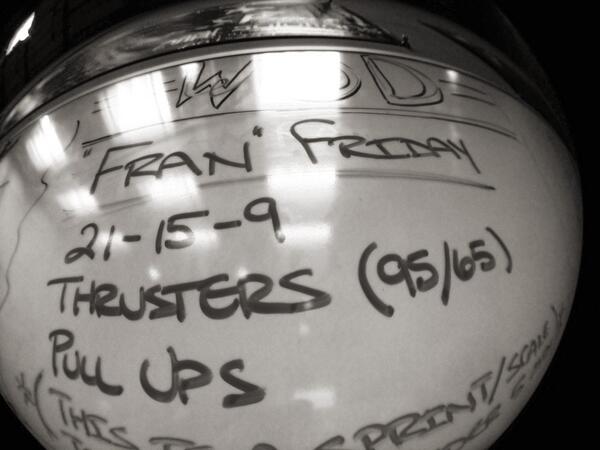 WOD
"FRAN" FRIDAY
21-15-9
THRUSTERS (95/65)
PULL UPS
*(THIS IS A SPRINT/SCALE